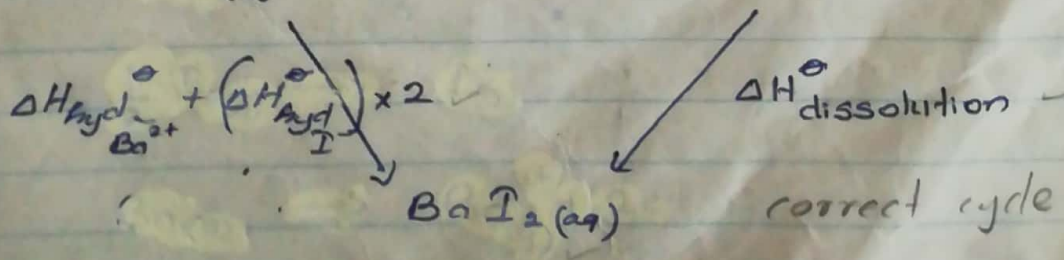 ΔH^θ_hyd Ba²⁺ + (ΔH^θ_hyd I) × 2
ΔH^θ dissolution
BaI₂(aq)
correct cycle